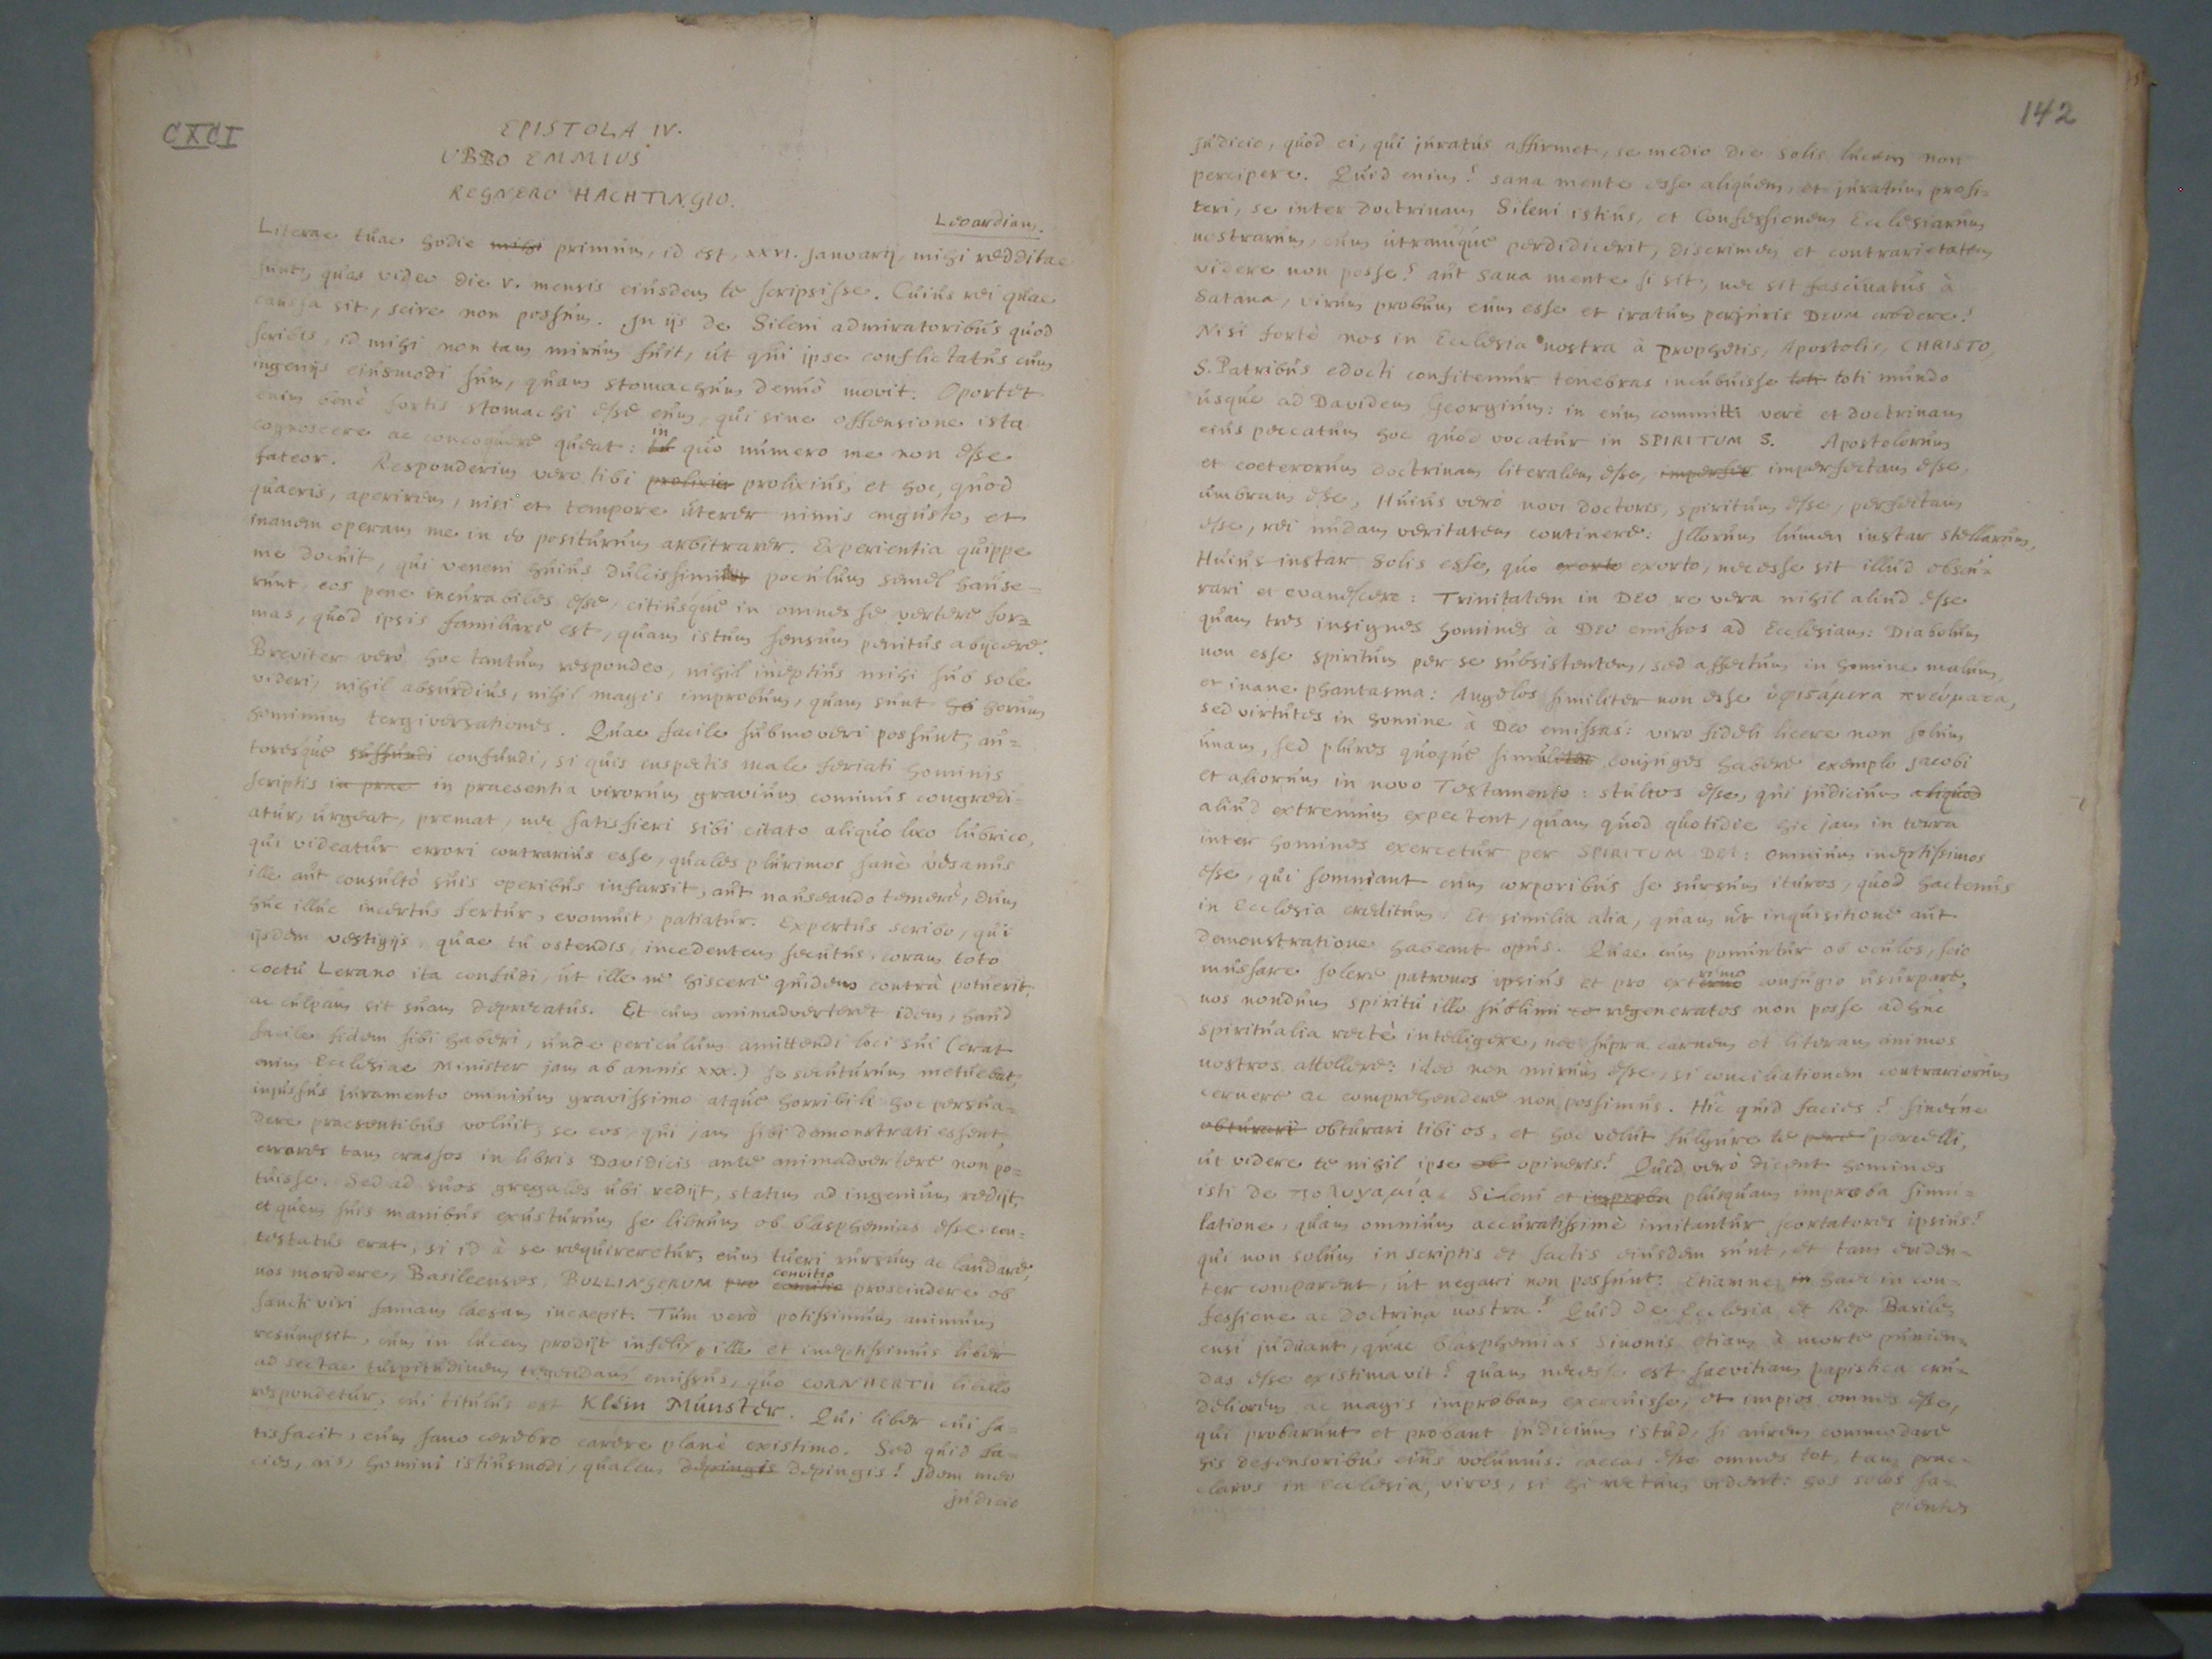 CXCI
EPISTOLA IV.
UBBO EMMIUS
REGNERO HACHTINGIO.
Leoardiam.
Literae tuae hodie mihi primùm, id est, XXVI. Januarij, mihi redditae
sunt, quas video die V. mensis eiusdem te scripsisse. Cuius rei quae
caussa sit, scire non possum. In ijs de Sileni admiratoribus quod
scribis, id mihi non tam mirum fuit, ut qui ipse conflictatus cum
ingenijs eiusmodi sum, quam stomachum denuò movit. Oportet
enim benè fortis stomachi esse eum, qui sine offensione ista
cognoscere ac concoquere queat: in quo numero me non esse
fateor. Responderem vero tibi prolixius prolixius, et hoc, quod
quaeris, aperirem, nisi et tempore uterer nimis angusto, et
inanem operam me in eo positurum arbitrarer. Experientia quippe
me docuit, qui veneni huius dulcissimum poculum semel hause=
runt, eos pene incurabiles esse, citiusque in omnes se vertere for=
mas, quod ipsis familiare est, quam istum sensum penitus abijcere.
Breviter verò hoc tantum respondeo, nihil ineptius mihi sub sole
videri, nihil absurdius, nihil magis improbum, quam sunt ho horum
hominum tergiversationes. Quae facile submoveri possunt, au=
toresque suffundi confundi, si quis inspectis male feriati hominis
scriptis in prae in praesentia virorum gravium cominus congredi=
atur, urgeat, premat, nec satisfieri sibi citato aliquo loco lubrico,
qui videatur errori contrarius esse, quales plurimos sanè vesanus
ille aut consultò suis operibus infarsit, aut nauseando temerè, dum
huc illuc incertus fertur, evomuit, patiatur. Expertus scribo, qui
ijsdem vestigijs, quae tu ostendis, incedentem secutus, coram toto
coetu Lerano ita confudi, ut ille ne hiscere quidem contrà potuerit,
ac culpam sit suam deprecatus. Et cum animadverteret idem, haud
facile fidem sibi haberi, unde periculum amittendi loci sui (erat
enim Ecclesiae Minister jam ab annis XXX.) se secuturum metuebat,
injussus juramento omnium gravissimo atque horribili hoc persua=
dere praesentibus voluit, se eos, qui jam sibi demonstrati essent,
errores tam crassos in libris Davidicis ante animadvertere non po=
tuisse. Sed ad suos gregales ubi redijt, statim ad ingenium redijt,
et quem suis manibus exusturum se librum ob blasphemias esse con=
testatus erat, si id à se requireretur, eum tueri rursum ac laudare,
nos mordere, Basileenses, BULLINGERUM pro convitio proscindere ob
sancti viri famam laesam incaepit. Tum verò potissimum animum
resumpsit, cum in lucem prodijt infelix ille et ineptissimus liber
ad sectae turpitudinem tegendam emissus, quo CORNHERTII libello
respondetur, cui titulus est Klein Munster. Qui liber cui sa=
tisfacit, eum sano cerebro carere planè existimo. Sed quid fa=
cies, ais, homini istiusmodi, qualem depingis depingis? Idem meo
judicio
142
judicio, quod ei, qui juratus affirmet, se medio die Solis lucem non
percipere. Quid enim? sana mente esse aliquem, et juratum profi=
teri, se inter doctrinam Sileni istius, et Confessionem Ecclesiarum
nostrarum, cum utramque perdidicerit, discrimen et contrarietatem
videre non posse? aut sana mente si sit, nec sit fascinatus à
Satana, virum probum eum esse et iratum perjuris DEUM credere?
Nisi fortè nos in Ecclesia nostra à Prophetis, Apostolis, CHRISTO,
S. Patribus edocti confitemur tenebras incubuisse toti toti mundo
usque ad Davidem Georgium: in eum committi verè et doctrinam
eius peccatum hoc quod vocatur in SPIRITUM S. Apostolorum
et coeterorum doctrinam literalem esse, imperfec imperfectam esse,
umbram esse, Huius verò novi doctoris, spiritum esse, perfectam
esse, rei nudam veritatem continere: Illorum lumen instar stellarum,
Huius instar Solis esse, quo exorto exorto, necesse sit illud obscu=
rari et evanescere: Trinitatem in DEO re vera nihil aliud esse
quam tres insignes homines à DEO emissos ad Ecclesiam: Diabolum
non esse spiritum per se subsistentem, sed affectum in homine malum,
et inane phantasma: Angelos similiter non esse ὑφισάμενα πνεύματα,
sed virtutes in homine à DEO emissas: viro fideli licere non solum
unam, sed plures quoque simul conjuges habere exemplo Jacobi
et aliorum in novo Testamento: stultos esse, qui judicium aliquod
aliud extremum expectent, quam quod quotidie hic jam in terra
inter homines exercetur per SPIRITUM DEI: omnium ineptissimos
esse, qui somniant cum corporibus se sursum ituros, quod hactenus
in Ecclesia creditum. Et similia alia, quam ut inquisitione aut
demonstratione habeant opus. Quae cum ponuntur ob oculos, scio
mussare solere patronos ipsius et pro extremo confugio usurpare,
nos nondum spiritu illo sublimi re regeneratos non posse adhuc
spiritualia rectè intelligere, nec supra carnem et literam animos
nostros attollere: ideo non mirum esse, si conciliationem contrariorum
cernere ac comprehendere non possimus. Hîc quid facies? sinesne
obturari obturari tibi os, et hoc velut fulgure te perc percelli,
ut videre te nihil ipse ob opineris? Quid verò dicent homines
isti de πολυγαμία Sileni et improba plusquam improba simu=
latione, quam omnium accuratissimè imitantur sectatores ipsius?
qui non solum in scriptis et factis eiusdem sunt, et tam eviden=
ter comparent, ut negari non possunt: Etiamne in haec in con=
fessione ac doctrina nostra? Quid de Ecclesia et Rep. Basile=
ensi judicant, quae blasphemias Simonis etiam à morte punien=
das esse existimavit? quam necesse est saevitiam papistica cru=
deliorem ac magis improbam exercuisse, et impios omnes esse,
qui probarunt et probant judicium istud, si aurem commodare
his defensoribus eius volumus: caecos esse omnes tot, tam prae=
claros in Ecclesia, viros, si hi rectum vident: hos solos sa=
pientes